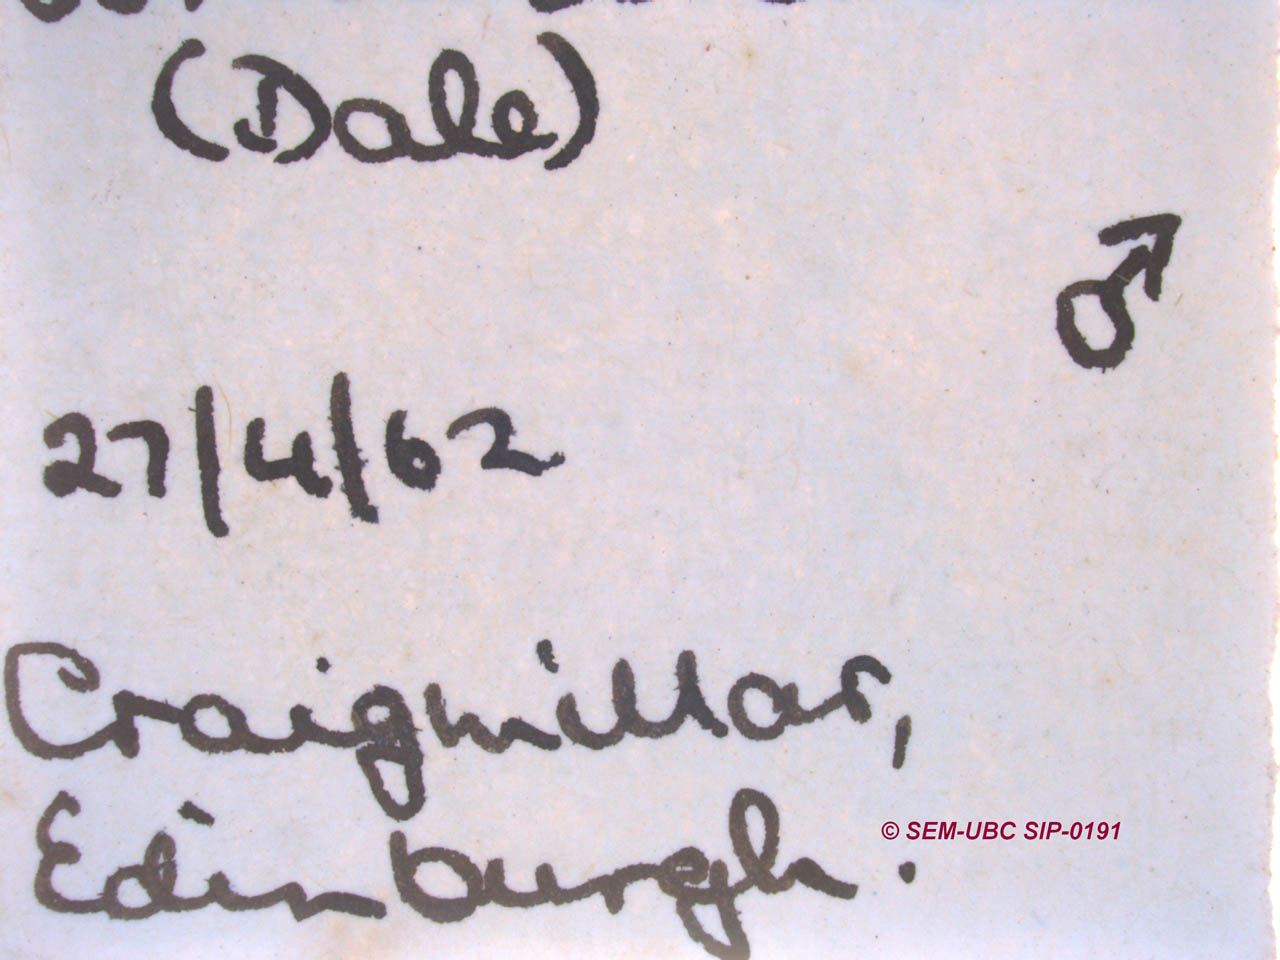 (Dale)
♂
27/4/62
Craigmillar,
Edinburgh.
© SEM-UBC SIP-0191